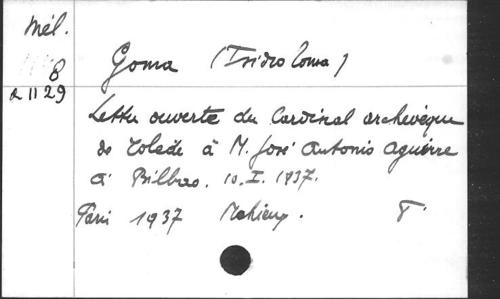 Mél.
8
a 1129
Goma (Isidro Goma)
Lettre ouverte du Cardinal archevêque
de Tolède à M. José Antonio Aguirre
à Bilbao. 10.I.1937.
Paris 1937